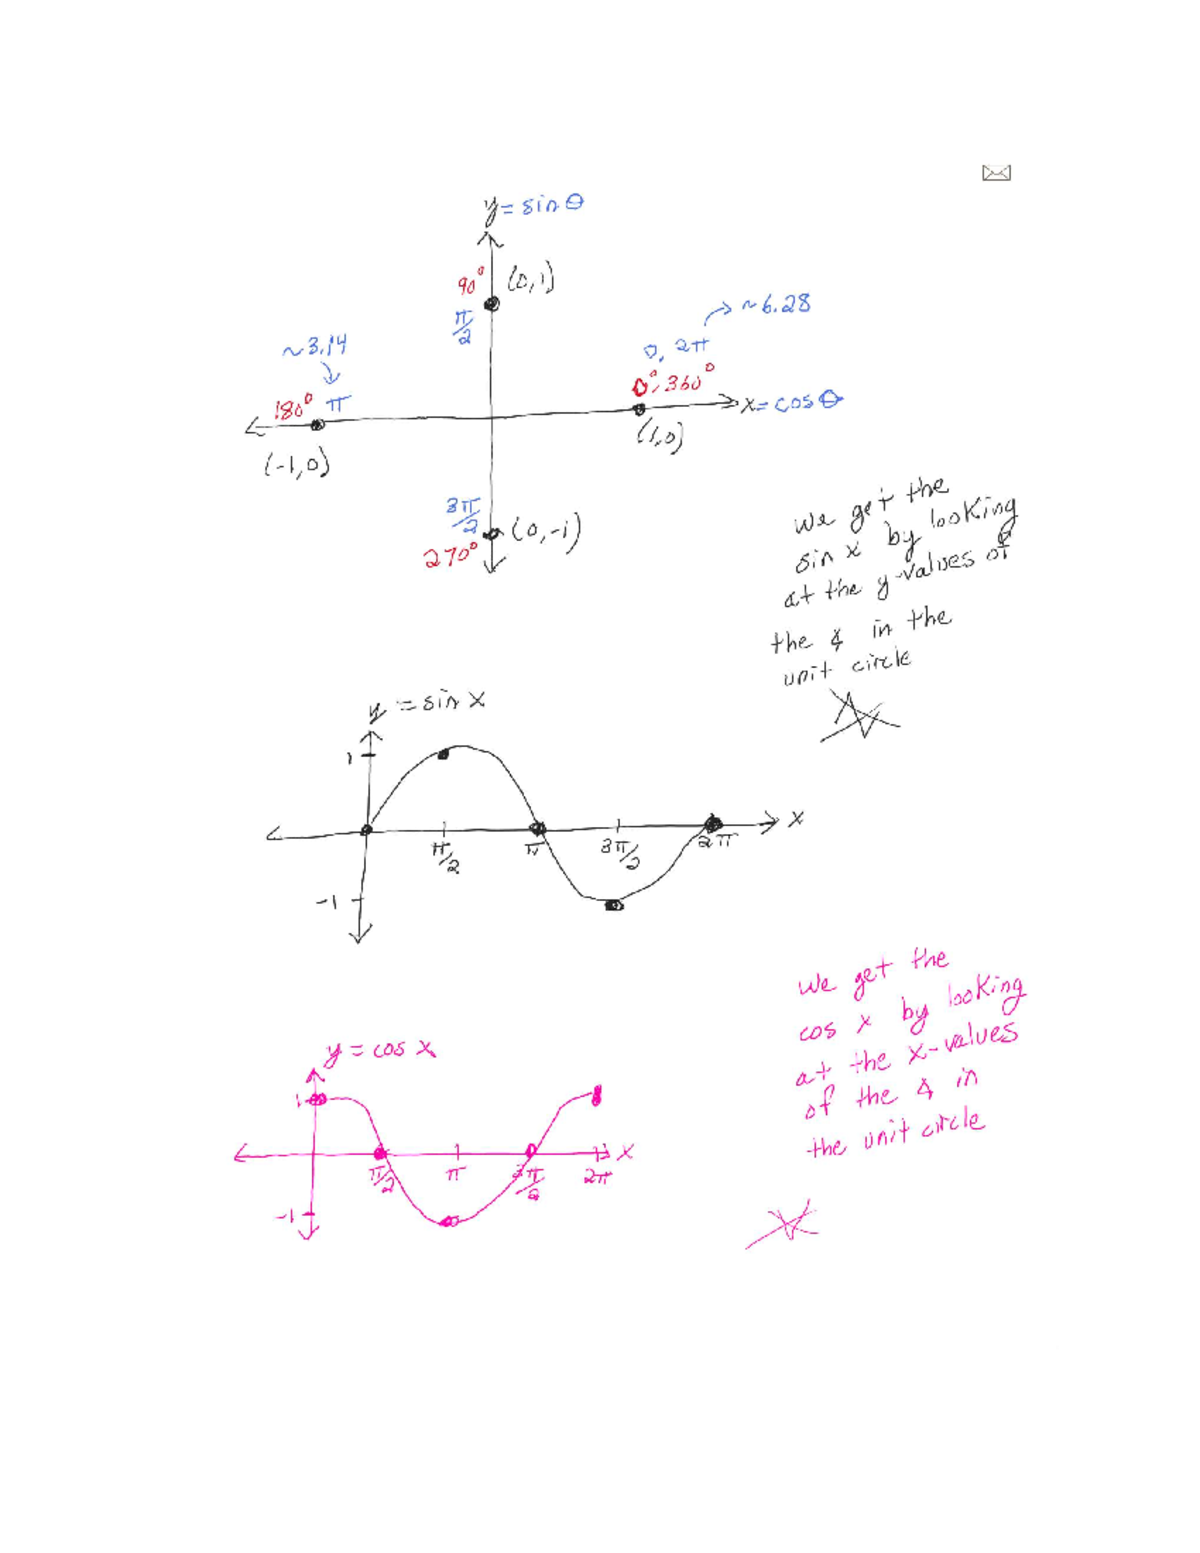 y = sin θ
90° (0,1)
π/2
~ 6.28
~3.14
0, 2π
0°, 360°
180° π
x = cos θ
(1,0)
(-1,0)
3π/2
(0,-1)
270°
we get the
sin x by looking
at the y-values of
the ∡ in the
unit circle
y = sin x
1
x
π/2 π 3π/2 2π
-1
we get the
cos x by looking
at the x-values
of the ∡ in
the unit circle
y = cos x
1
x
π/2 π 3π/2 2π
-1